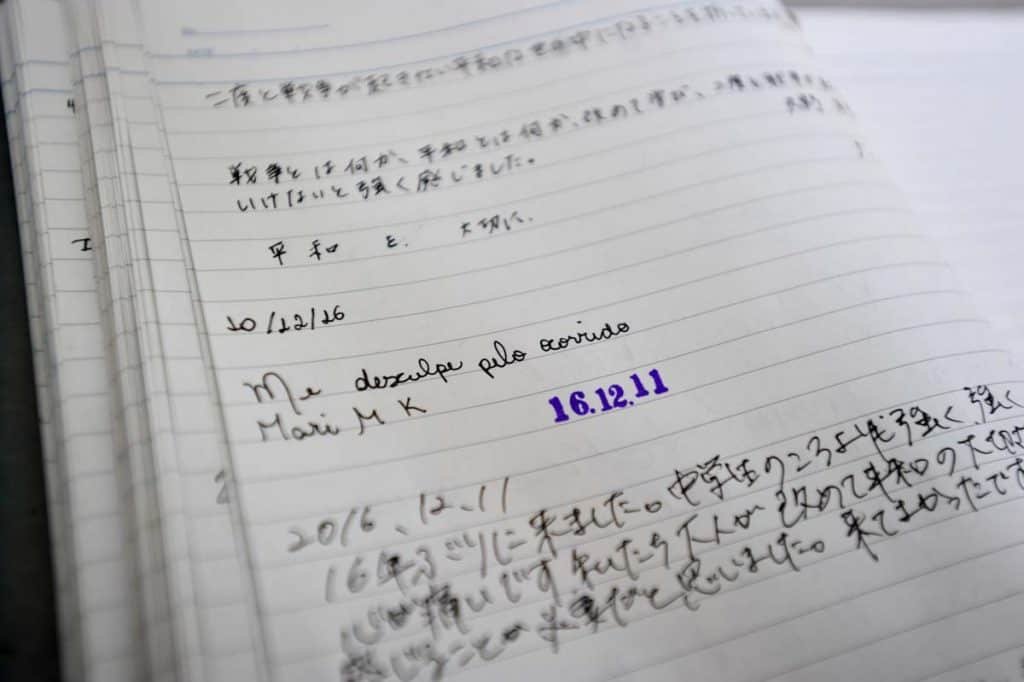 二度と戦争が起きない平和な世の中になることを
戦争とは何か、平和とは何か、改めて学び、二度と戦争
いけないと強く感じました。
平和を大切に.
10/12/16
Me desculpe pelo ocorrido
Mari M K
16.12.11
2016、12、11
16年ぶりに来ました。中学生のころより強く、強く
心が痛いです
大人が改めて平和の大切
感じることが大事だと思いました。来てよかったです